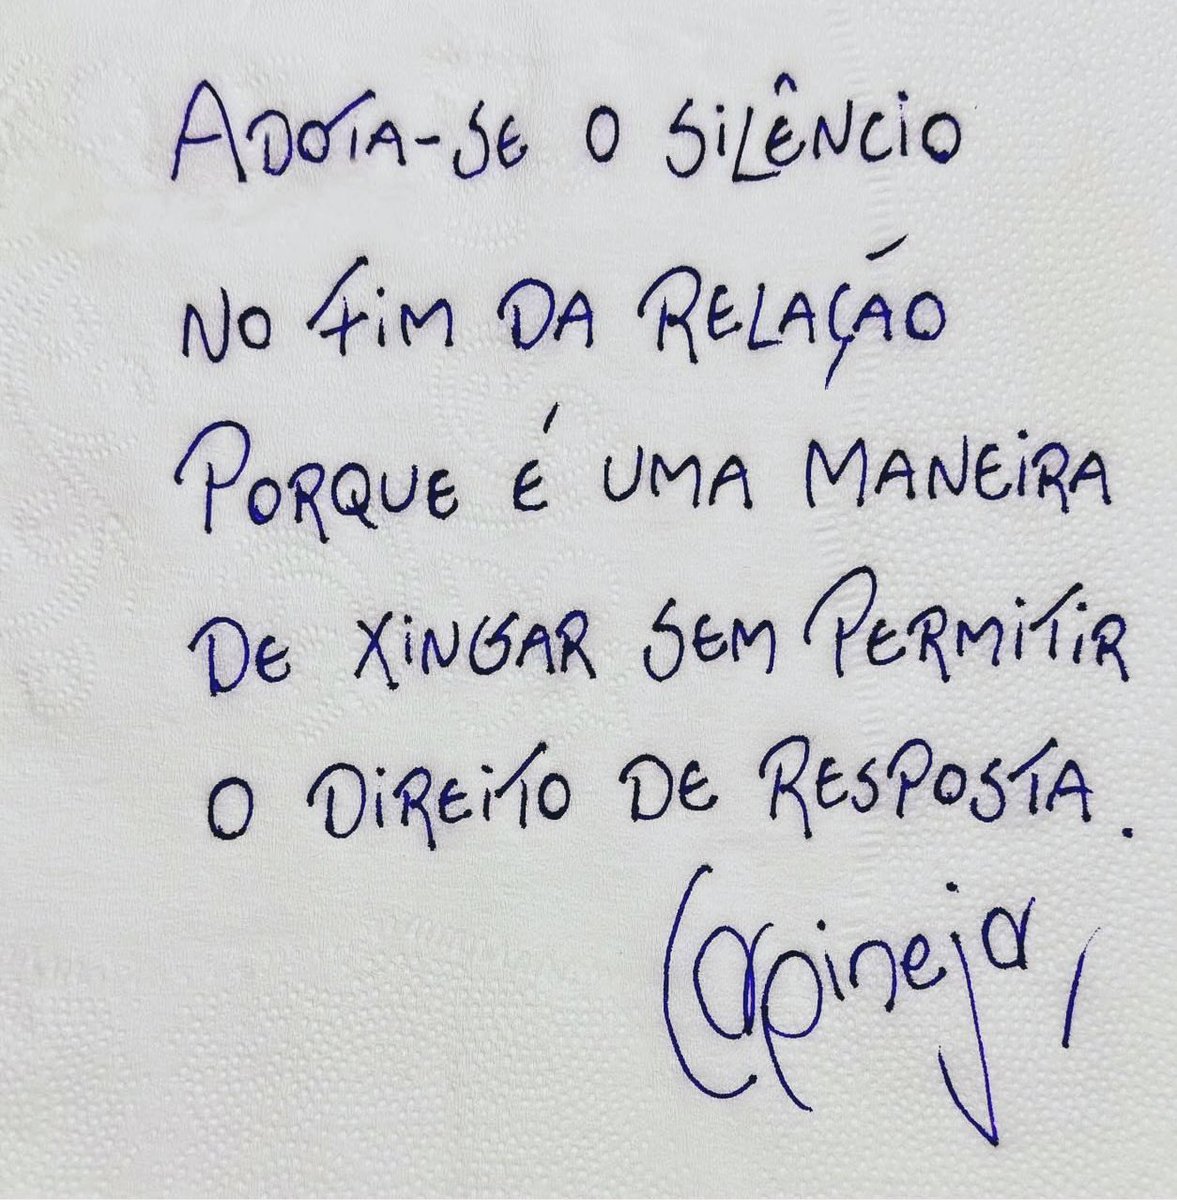 ADOTA-SE O SILÊNCIO
NO FIM DA RELAÇÃO
PORQUE É UMA MANEIRA
DE XINGAR SEM PERMITIR
O DIREITO DE RESPOSTA.
Carpinejar